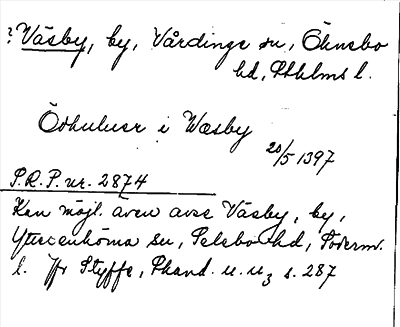 ? Väsby, by, Vårdinge sn, Öknebo
hd, Sthlms l.
i Wæsby
20/5 1397
S.R.P. nr. 2874
Kan möjl. även avse Väsby, by,
Ytterenhörna sn, Selebo hd, Söderm.
l. Jfr Styffe, Skand. u. u₃ s. 287